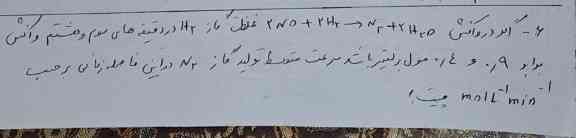 ۶- اگر در واکنش ۲NO + ۲H₂ → N₂ + ۲H₂O غلظت گاز H₂ در دقیقه های سوم و هشتم واکنش
برابر ۰٫۹ و ۰٫۴ مول بر لیتر باشد سرعت متوسط تولید گاز N₂ در این فاصله زمانی برحسب
mol L⁻¹ min⁻¹ چیست؟